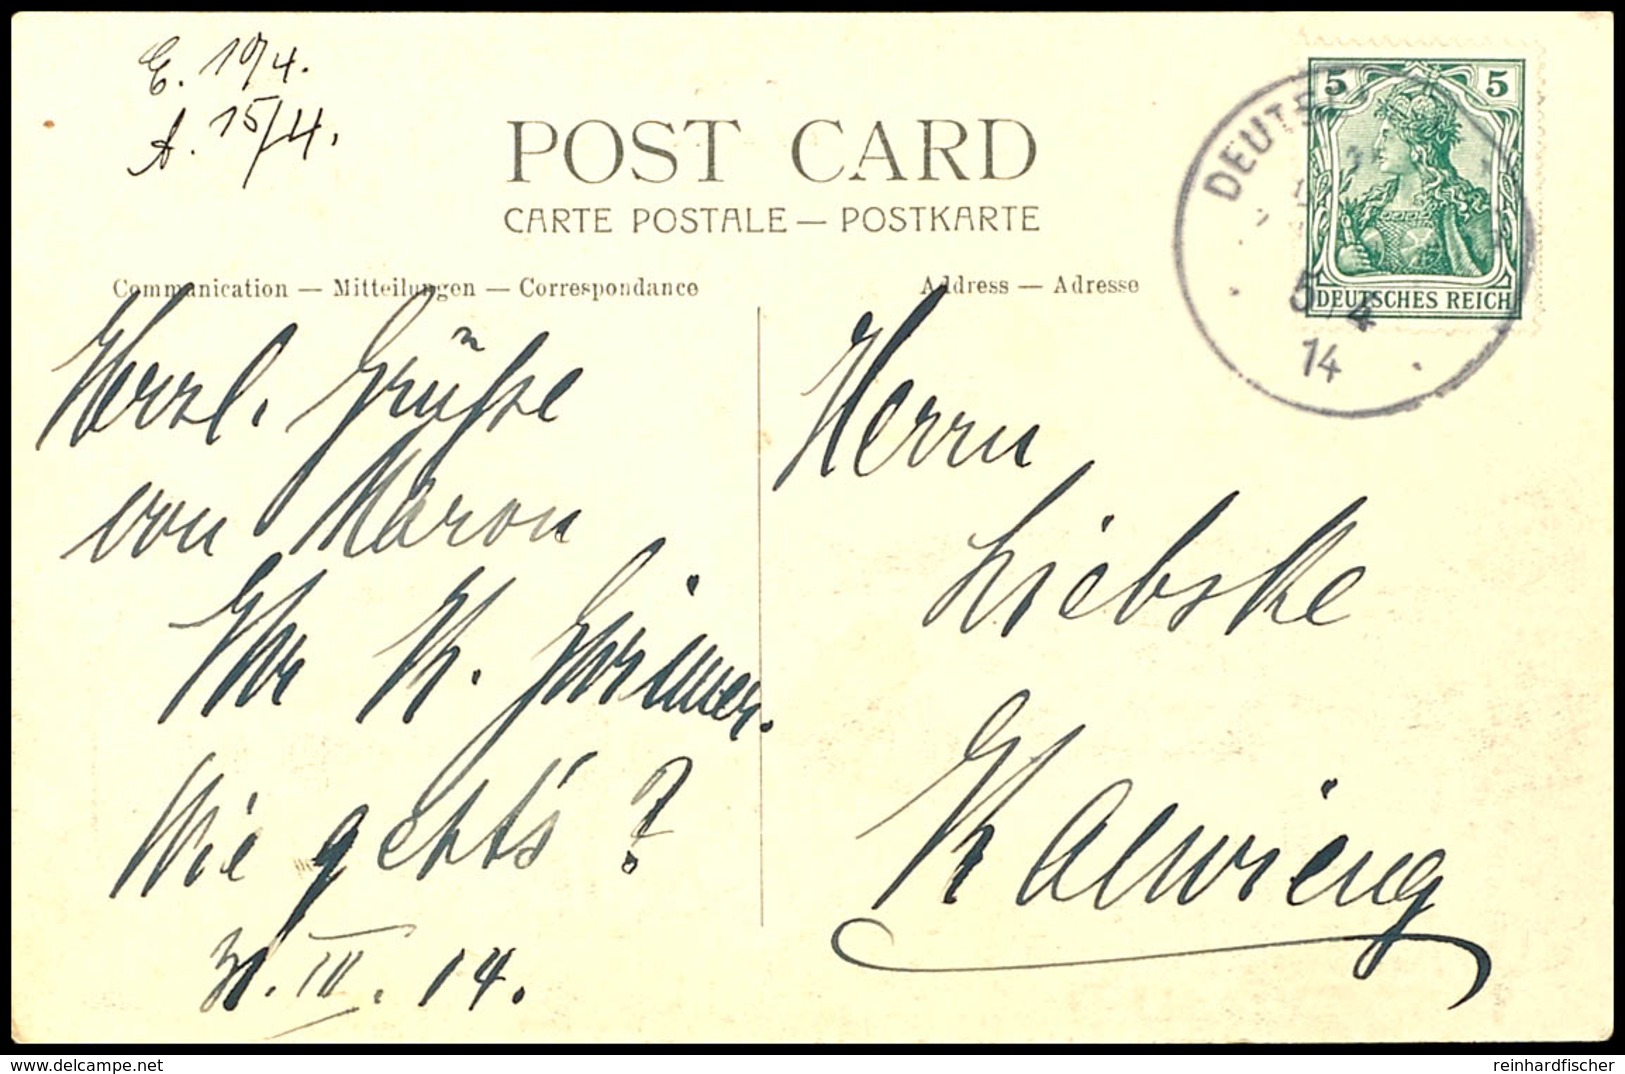 E. 10/4.
A. 15/4.
POST CARD
CARTE POSTALE — POSTKARTE
Communication — Mitteilungen — Correspondance
Address — Adresse
5 5
DEUTSCHES REICH
DEUTS
5/4
14
Herzl. Grüße
von Maron
Ihr K.
Wie geht's?
31. III. 14.
Herrn
Liebske
Kawieng
reinhardfischer